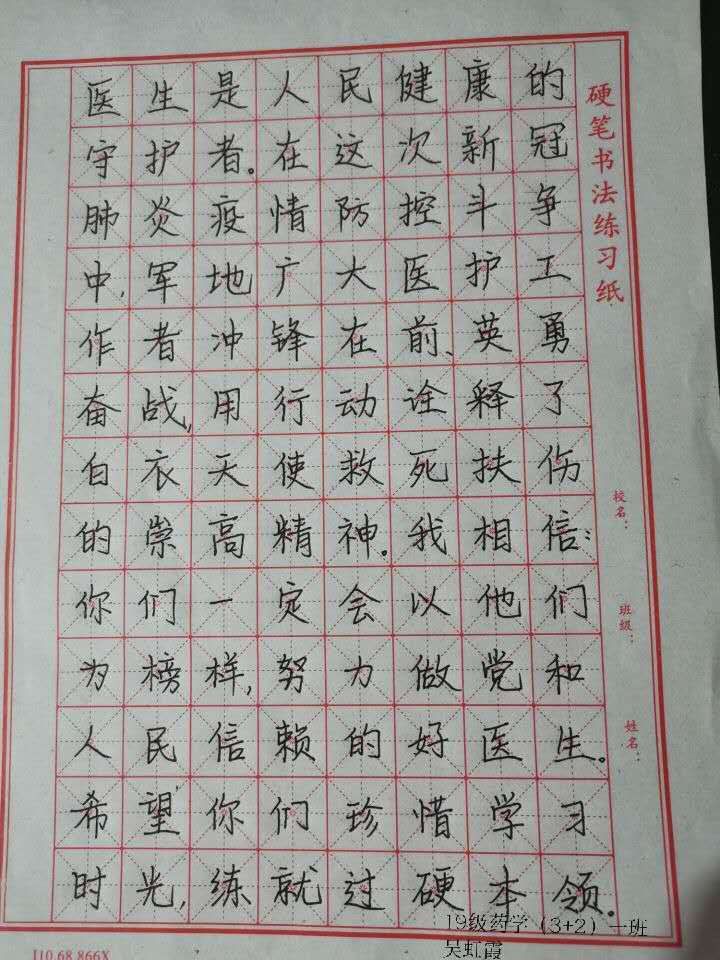 医生是人民健康的
守护者。在这次新冠
肺炎疫情防控斗争
中,军地广大医护工
作者冲锋在前、英勇
奋战,用行动诠释了
白衣天使救死扶伤
的崇高精神。我相信:
你们一定会以他们
为榜样,努力做党和
人民信赖的好医生。
希望你们珍惜学习
时光,练就过硬本领。
硬笔书法练习纸
校名:
班级:
姓名:
19级药学（3+2）一班
吴虹霞
J10.68.866X